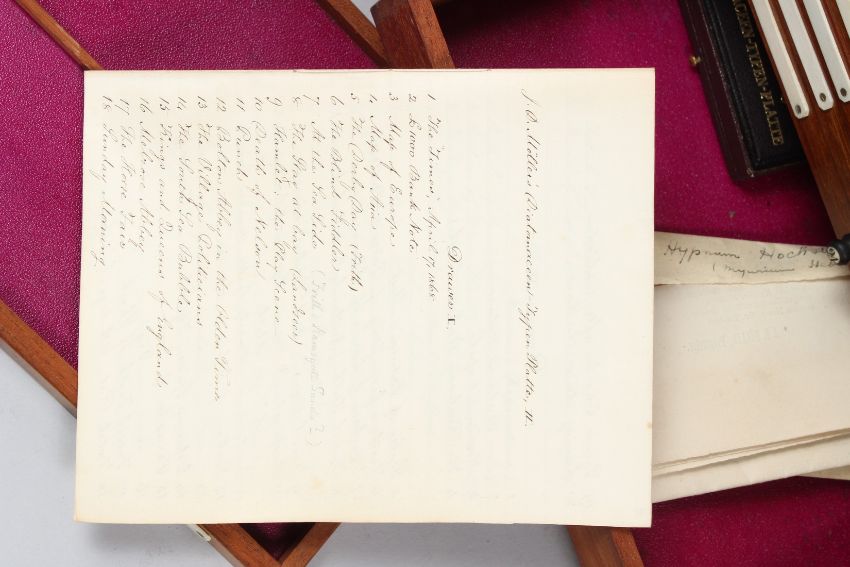 J. D. Möller's Diatomaceen-Typen Platte, II.
Drawer I.
1 The Times, April 17, 1868
2 £1000 Bank Note
3 Map of Europe
4 Map of Asia
5 The Derby Day (Frith)
6 The Blind Fiddler
7 At the Sea Side (Frith Ramsgate Sands?)
8 The Stag at bay (Landseer)
9 Hamlet, the Play Scene
10 Death of Nelson
11 Punch
12 Bolton Abbey in the Olden Time
13 The Village Politicians
14 The South Sea Bubble
15 Kings and Queens of England
16 Melrose Abbey
17 The Horse Fair
18 Sunday Morning
TYPEN-PLATTE
Hypnum
(Myurium